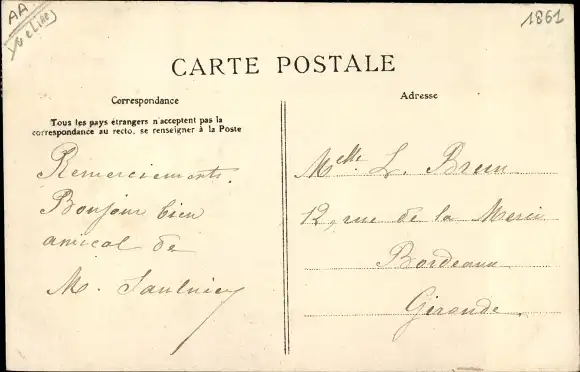 AA
Yvelines
1861
CARTE POSTALE
Correspondance
Tous les pays étrangers n'acceptent pas la
correspondance au recto, se renseigner à la Poste
Remerciements.
Bonjour bien
amical de
M. Saulnier
Adresse
Melle L. Brun
12, rue de la Merci
Bordeaux
Gironde.